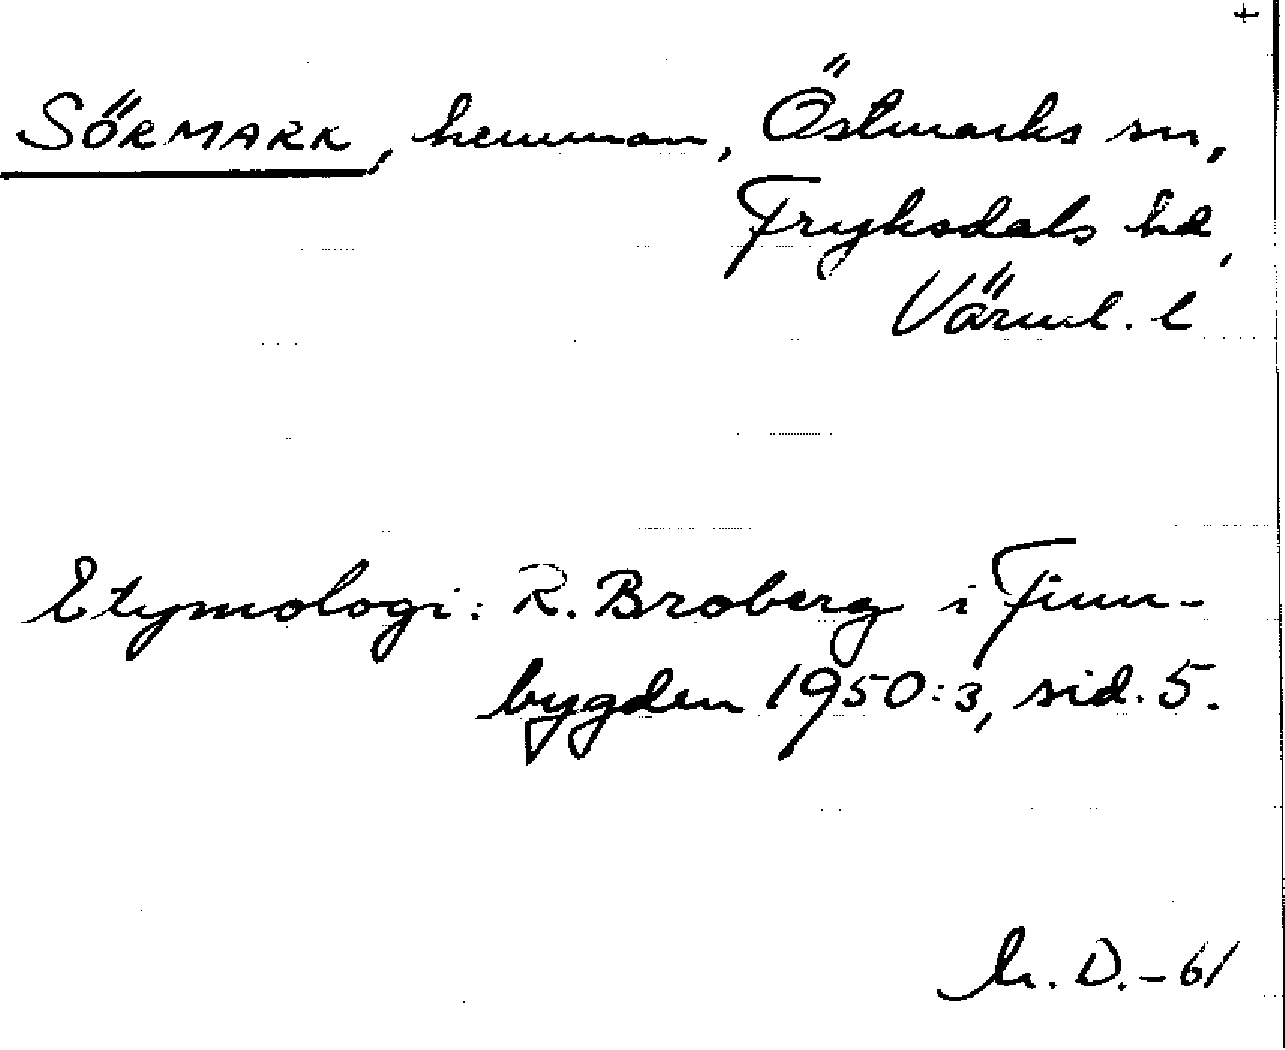 SÖRMARK, hemman, Östmarks sn,
Fryksdals hd,
Värml. l
Etymologi: R. Broberg i Finn-
bygden 1950:3, sid. 5.
D. -61